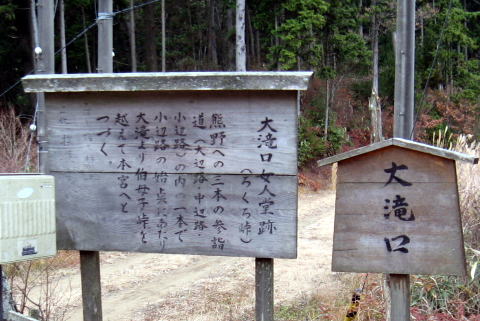 大滝口女人堂跡
(ろくろ峠)
熊野への三本の参詣
道(大辺路・中辺路・
小辺路)の内、一本で
小辺路の始点にあたり
大滝より伯母子峠を
越えて本宮へと
つづく。
大滝口